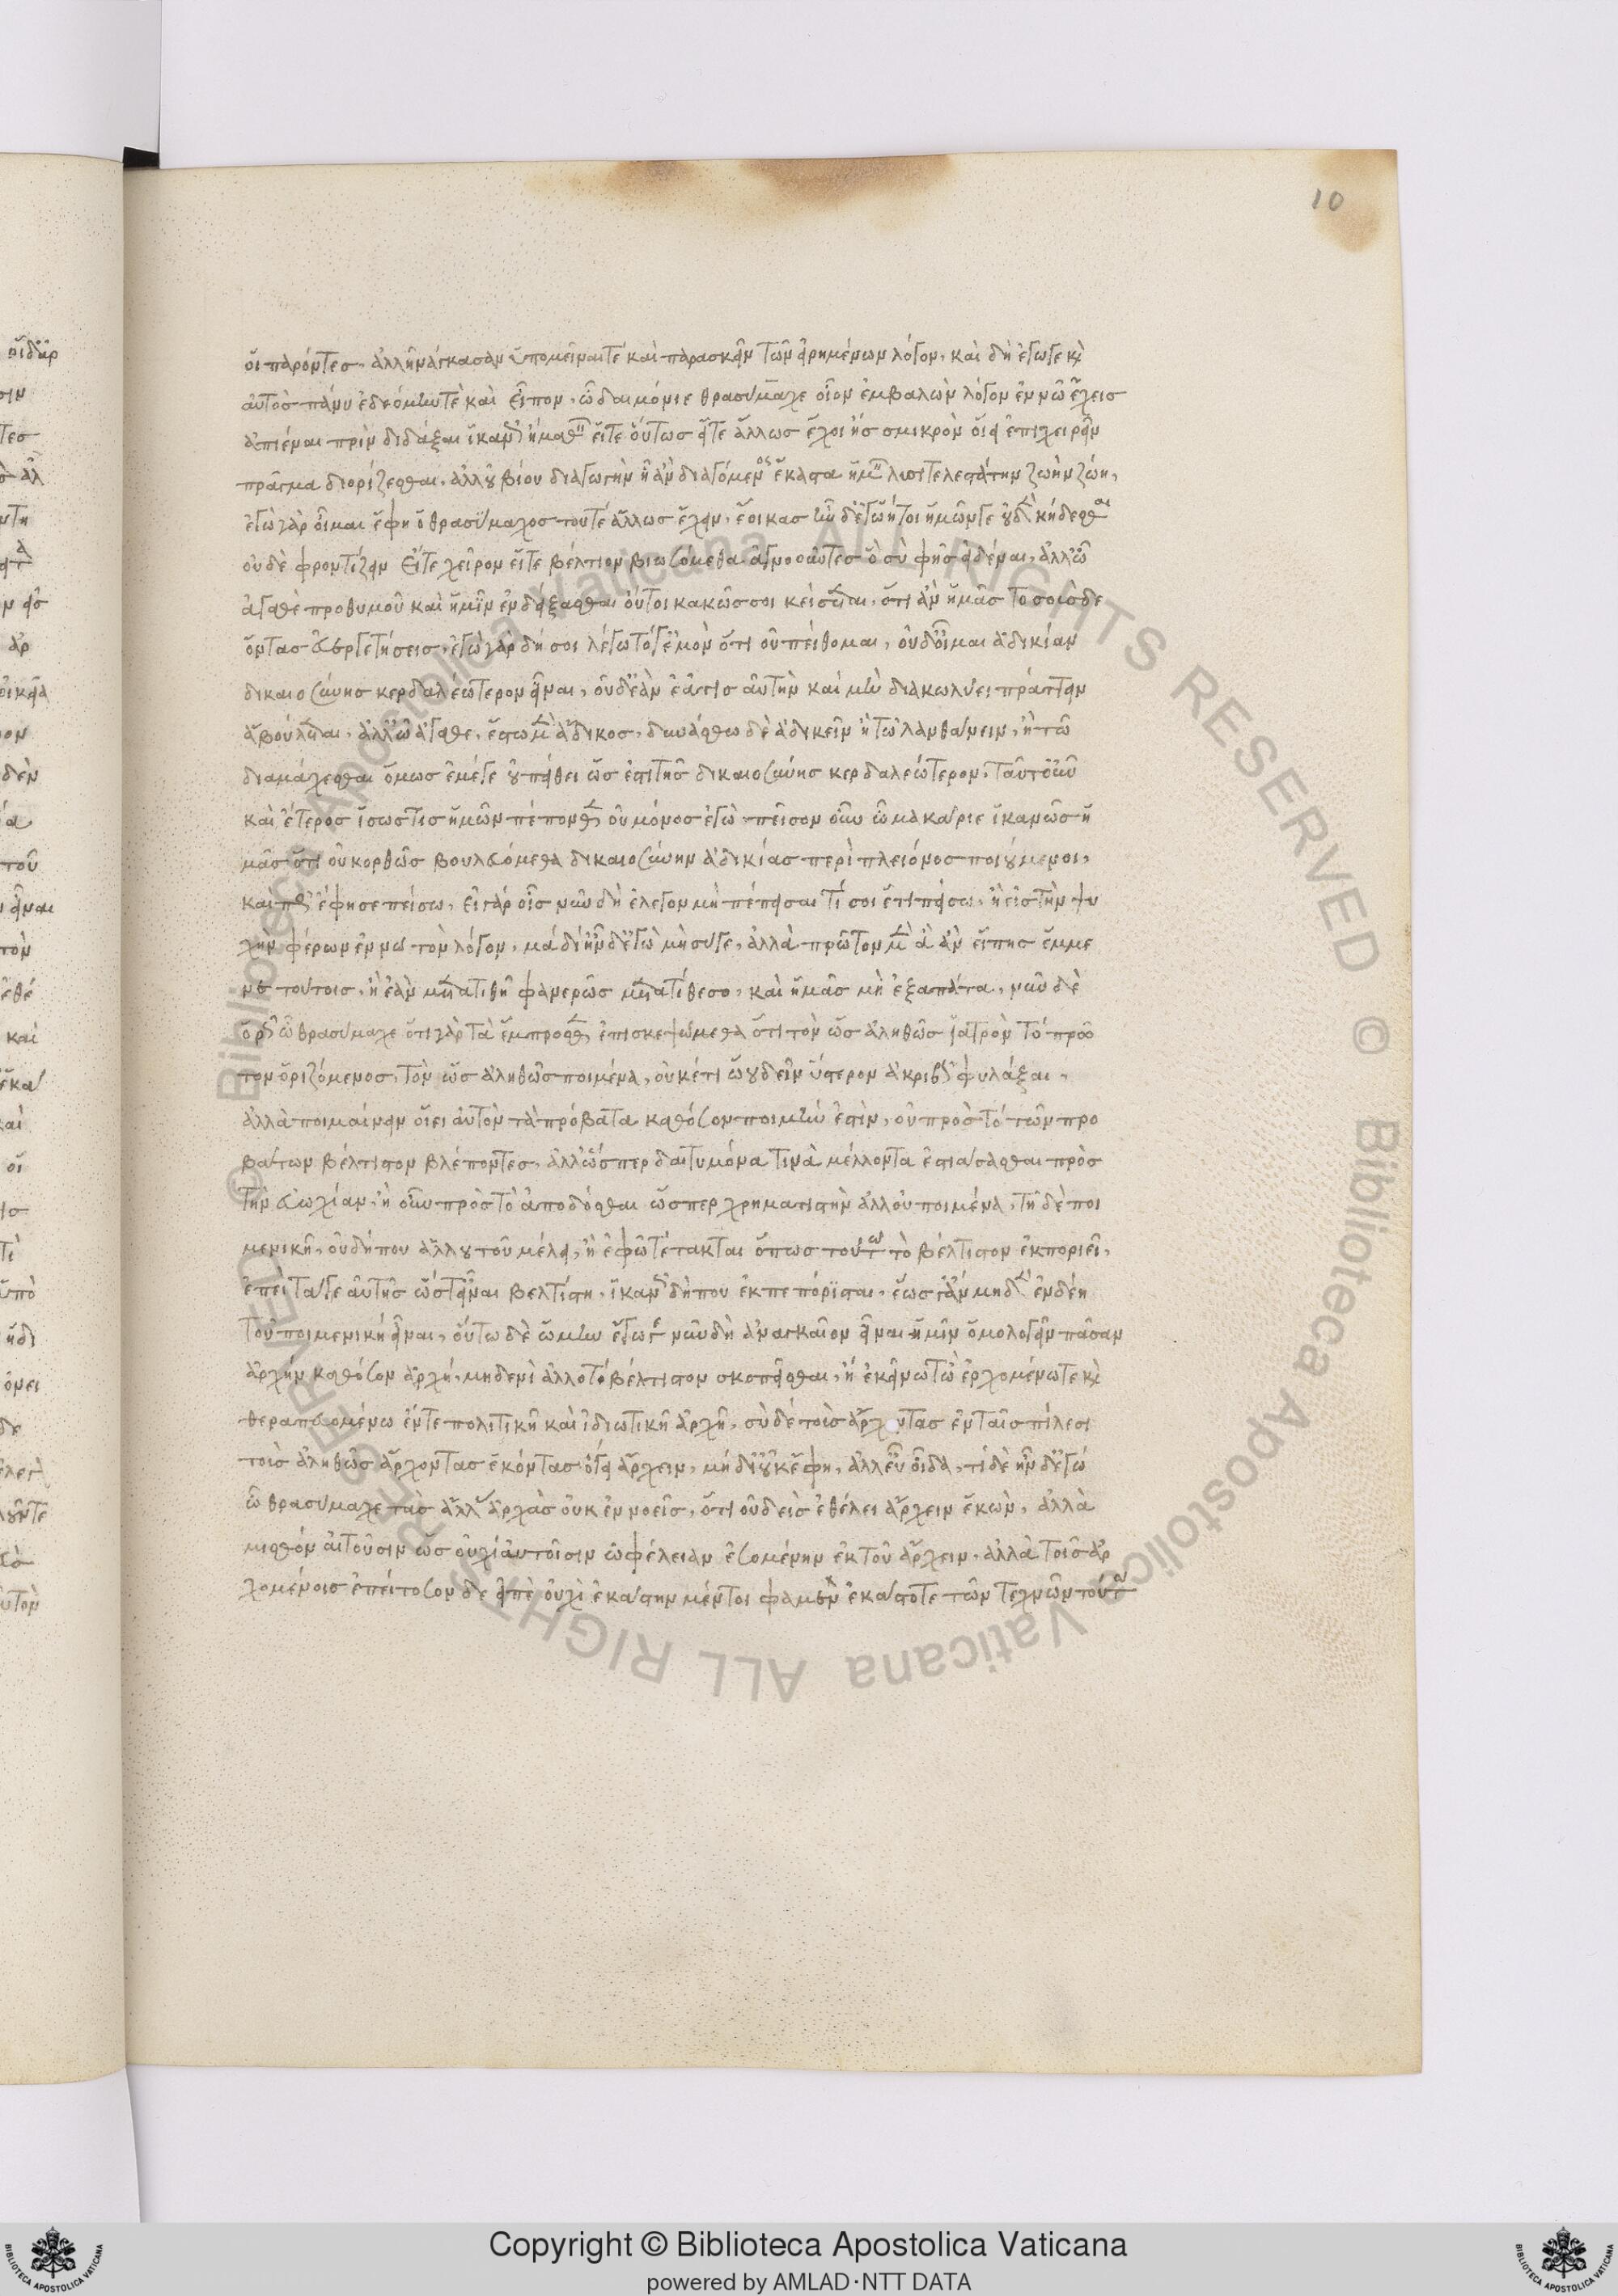 10
οἱ παρόντες, ἀλλ' ἠνάγκασαν ὑπομεῖναί τε καὶ παρασχεῖν τῶν εἰρημένων λόγον, καὶ δὴ ἔγωγε καὶ
αὐτὸς πάνυ ἐδεόμην τὲ καὶ εἶπον, ὦ δαιμόνιε θρασύμαχε οἷον ἐμβαλὼν λόγον ἐν νῶ ἔχεις
ἀπιέναι πρὶν διδάξαι ἱκανῶς ἢ μαθεῖν εἴτε οὕτως εἴτε ἄλλως ἔχοι ἢ σμικρὸν οἴει ἐπιχειρεῖν
πρᾶγμα διορίζεσθαι, ἀλλ' οὐ βίου διαγωγὴν ἧ ἂν διαγόμενος ἕκαστος ἡμῶν λυσιτελεστάτην ζωὴν ζώη,
ἐγὼ γὰρ οἶμαι ἔφη ὁ θρασύμαχος τουτὶ ἄλλως ἔχειν, ἔοικας ἦν δ' ἐγὼ ἤτοι ἡμῶν γε οὐδὲν κήδεσθαι
οὐδὲ φροντίζειν εἴτε χεῖρον εἴτε βέλτιον βιωσόμεθα ἀγνοοῦντες ὃ σὺ φῂς εἰδέναι, ἀλλ' ὦ
ἀγαθὲ προθυμοῦ καὶ ἡμῖν ἐνδείξασθαι οὔτοι κακῶς σοι κείσεται, ὅτι ἂν ἡμᾶς τοσούσδε
ὄντας εὐεργετήσεις, ἐγὼ γὰρ δή σοι λέγω τό γ' ἐμὸν ὅτι οὐ πείθομαι, οὐδ' οἶμαι ἀδικίαν
δικαιοσύνης κερδαλεώτερον εἶναι, οὐδ' ἐὰν ἐᾶ τις αὐτὴν καὶ μὴ διακωλύει πράττειν
ἃ βούλεται, ἀλλ' ὦ ἀγαθὲ, ἔστω μὲν ἄδικος, δυνάσθω δὲ ἀδικεῖν ἢ τῶ λανθάνειν, ἢ τῶ
διαμάχεσθαι ὅμως ἐμέ γε οὐ πείθει ὡς ἔστι τῆς δικαιοσύνης κερδαλεώτερον, ταῦτ' οὖν
καὶ ἕτερος ἴσως τις ἡμῶν πέπονθεν οὐ μόνος ἐγὼ, πεῖσον οὖν ὦ μακάριε ἱκανῶς ἡ
μᾶς ὅτι οὐκ ὀρθῶς βουλευόμεθα δικαιοσύνην ἀδικίας περὶ πλείονος ποιούμενοι,
καὶ πῶς ἔφη σε πείσω, εἰ γὰρ οἷς νῦν δὴ ἔλεγον μὴ πέπεισαι τί σοι ἔτι πείσω, ἢ εἰς τὴν ψυ
χὴν φέρων ἐνθῶ τὸν λόγον, μὰ δί' ἦν δ' ἐγὼ μὴ σύ γε, ἀλλὰ πρῶτον μὲν ἃ ἂν εἴπης ἔμμε
νε τούτοις, ἢ ἐὰν μετατιθῆ φανερῶς μετατίθεσο, καὶ ἡμᾶς μὴ ἐξαπάτα, νῦν δὲ
ὁρᾶς ὦ θρασύμαχε ἔτι γὰρ τὰ ἔμπροσθεν ἐπισκεψώμεθα ὅτι τὸν ὡς ἀληθῶς ἰατρὸν τὸ πρῶ
τον ὁριζόμενος, τὸν ὡς ἀληθῶς ποιμένα, οὐκέτι ὤου δεῖν ὕστερον ἀκριβῶς φυλάξαι,
ἀλλὰ ποιμαίνειν οἴει αὐτὸν τὰ πρόβατα καθόσον ποιμήν ἐστιν, οὐ πρὸς τὸ τῶν προ
βάτων βέλτιστον βλέποντες, ἀλλ' ὥσπερ δαιτυμόνα τινὰ μέλλοντα ἑστιάσεσθαι πρὸς
τὴν εὐωχίαν, ἢ οὖν πρὸς τὸ ἀποδόσθαι ὥσπερ χρηματιστὴν ἀλλ' οὐ ποιμένα, τῆ δὲ ποι
μενικῆ, οὐ δήπου ἄλλου του μέλει, ἢ ἐφ' ὧ τέτακται ὅπως τούτω τὸ βέλτιστον ἐκποριεῖ,
ἐπεὶ τά γε αὐτῆς ὥστ' εἶναι βελτίστη, ἱκανῶς δήπου ἐκπεπόρισται, ἕως γ' ἂν μηδὲν ἐνδέη
τοῦ ποιμενικὴ εἶναι, οὕτω δὲ ὤμην ἔγωγε νῦν δὴ ἀναγκαῖον εἶναι ἡμῖν ὁμολογεῖν πᾶσαν
ἀρχὴν καθόσον ἀρχὴ, μηδενὶ ἄλλο τὸ βέλτιστον σκοπεῖσθαι, ἢ ἐκείνω τῶ ἀρχομένω τε καὶ
θεραπευομένω ἔν τε πολιτικῆ καὶ ἰδιωτικῆ ἀρχῆ, σὺ δὲ τοὺς ἄρχοντας ἐν ταῖς πόλεσι
τοὺς ἀληθῶς ἄρχοντας ἑκόντας οἴει ἄρχειν, μὰ δί' οὐκ ἔφη, ἀλλ' εὖ οἶδα, τί δὲ ἦν δ' ἐγώ
ὦ θρασύμαχε τὰς ἄλλας ἀρχὰς οὐκ ἐννοεῖς, ὅτι οὐδεὶς ἐθέλει ἄρχειν ἑκὼν, ἀλλὰ
μισθὸν αἰτοῦσιν ὡς οὐχὶ αὐτοῖσιν ὠφέλειαν ἐσομένην ἐκ τοῦ ἄρχειν, ἀλλὰ τοῖς ἀρ
χομένοις ἐπεὶ τοσόνδε εἰπὲ οὐχὶ ἑκάστην μέντοι φαμὲν ἑκάστοτε τῶν τεχνῶν τούτω
Copyright © Biblioteca Apostolica Vaticana
powered by AMLAD·NTT DATA